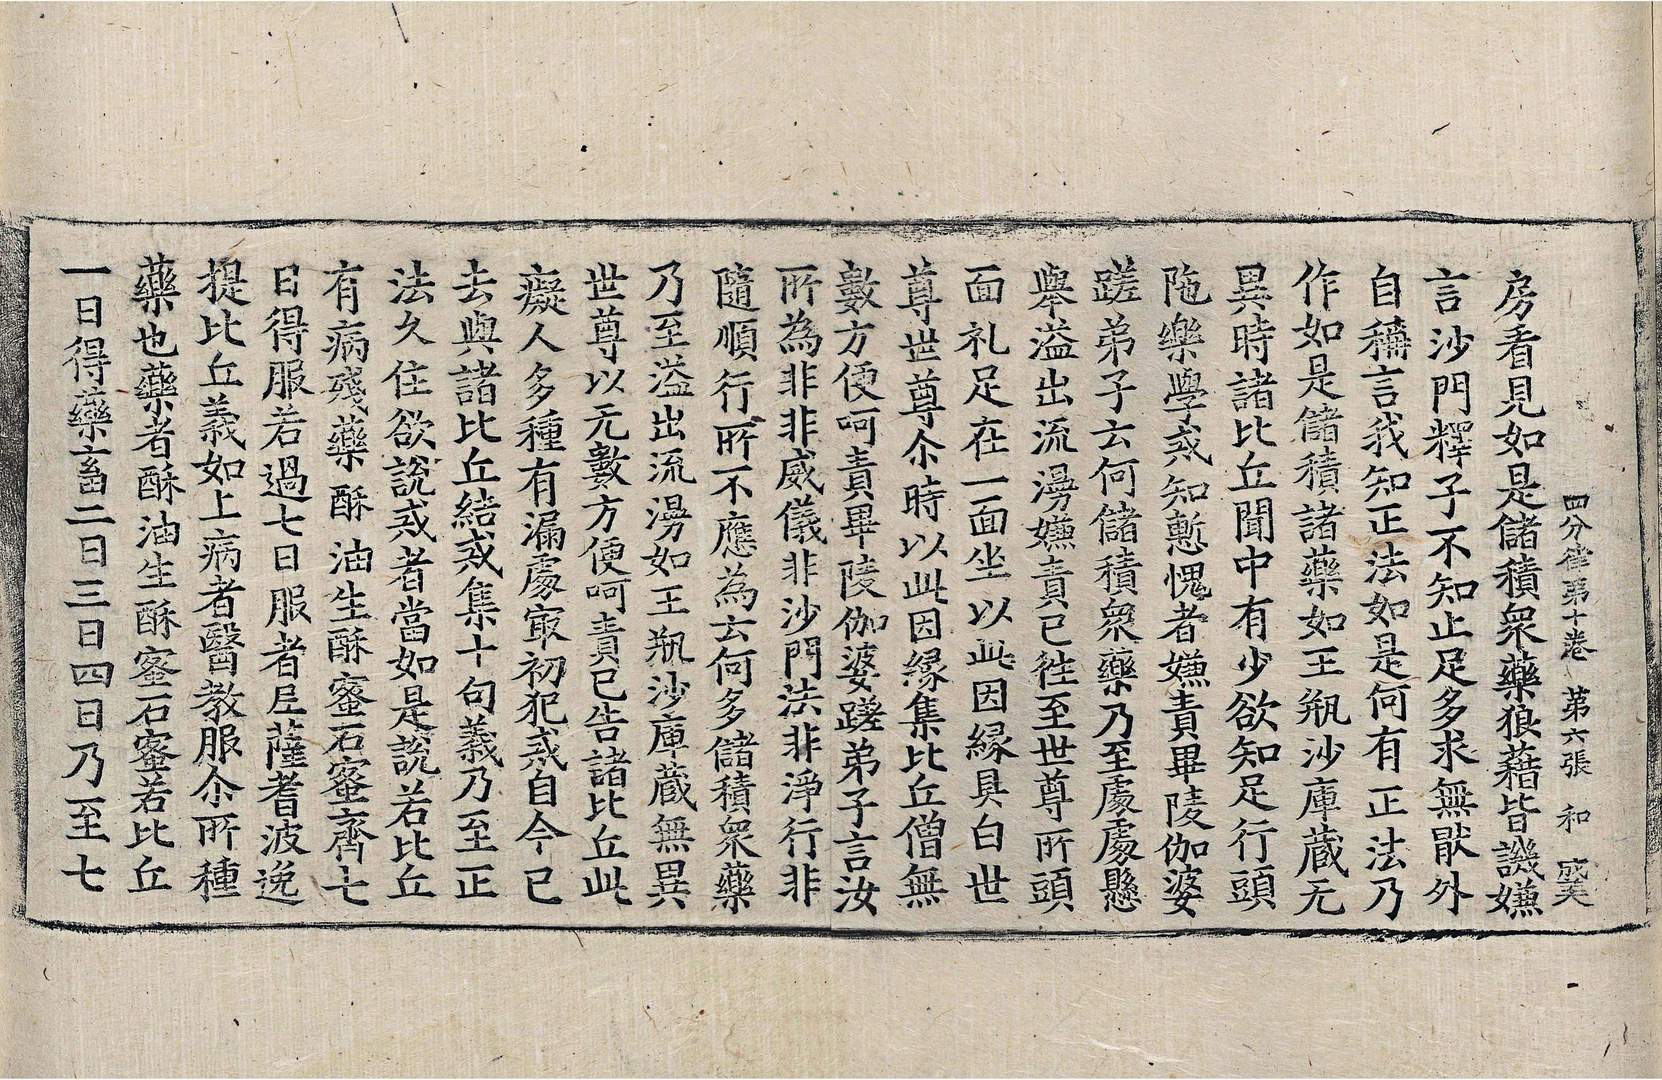 四分律第十卷 第六張 和 
房看見如是儲積衆藥狼藉皆譏嫌
言沙門釋子不知止足多求無猒外
自稱言我知正法如是何有正法乃
作如是儲積諸藥如王瓶沙庫藏无
異時諸比丘聞中有少欲知足行頭
陁樂學戒知慙愧者嫌責畢陵伽婆
蹉弟子云何儲積衆藥乃至處處懸
舉溢出流漫嫌責已徃至世尊所頭
面礼足在一面坐以此因緣具白世
尊世尊尒時以此因緣集比丘僧無
數方便呵責畢陵伽婆蹉弟子言汝
所為非非威儀非沙門法非淨行非
隨順行所不應為云何多儲積衆藥
乃至溢出流漫如王瓶沙庫藏無異
世尊以无數方便呵責已告諸比丘此
癡人多種有漏處㝡初犯戒自今已
去與諸比丘結戒集十句義乃至正
法久住欲說戒者當如是說若比丘
有病殘藥酥油生酥蜜石蜜齊七
日得服若過七日服者尼薩耆波逸
提比丘義如上病者醫教服尒所種
藥也藥者酥油生酥蜜石蜜若比丘
一日得藥畜二日三日四日乃至七